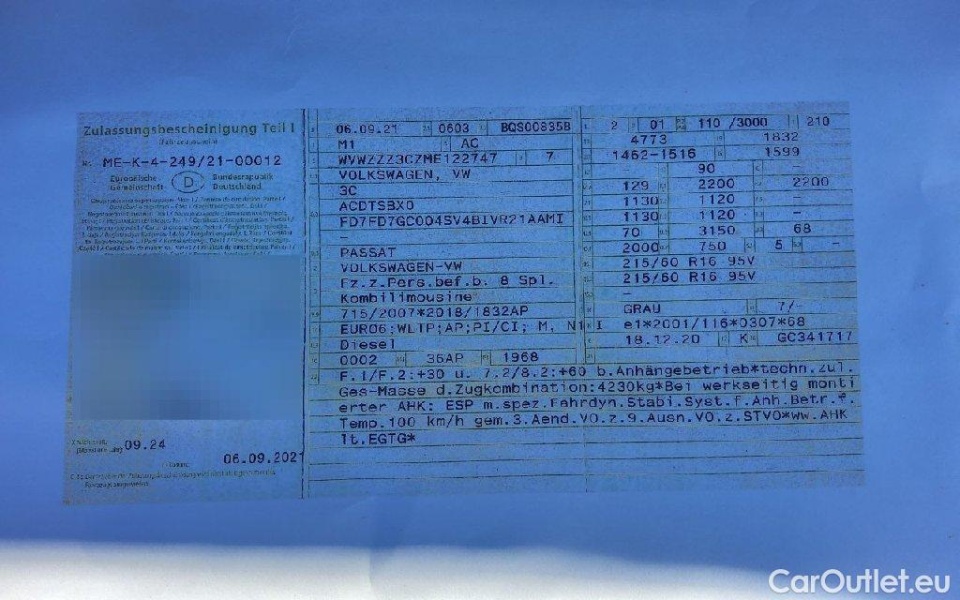 Zulassungsbescheinigung Teil I
(Fahrzeugschein)
Nr. ME-K-4-249/21-00012
Europäische Gemeinschaft D Bundesrepublik Deutschland
09.24
06.09.2021
06.09.21 0603 BQS00835B
M1 AC
WVWZZZ3CZME122747 7
VOLKSWAGEN, VW
3C
ACDTSBX0
FD7FD7GC004SV4BIVR21AAMI
–
PASSAT
VOLKSWAGEN-VW
Fz.z.Pers.bef.b. 8 Spl.
Kombilimousine
715/2007*2018/1832AP
EURO6;WLTP;AP;PI/CI; M, N1 I
Diesel
0002 36AP 1968
2 01 110 /3000 210
4773 1832
1462-1516 1599
90
129 2200 2200
1130 1120 –
1130 1120 –
70 3150 68
2000 750 5 –
215/60 R16 95V
215/60 R16 95V
–
GRAU 7/-
e1*2001/116*0307*68
18.12.20 K GC341717
F.1/F.2:+30 u. 7.2/8.2:+60 b.Anhängebetrieb*techn.zul.
Ges-Masse d.Zugkombination:4230kg*Bei werkseitig monti
erter AHK: ESP m.spez.Fahrdyn.Stabi.Syst.f.Anh.Betr.f.
Temp.100 km/h gem.3.Aend.VO.z.9.Ausn.VO.z.STVO*ww.AHK
lt.EGTG*
CarOutlet.eu